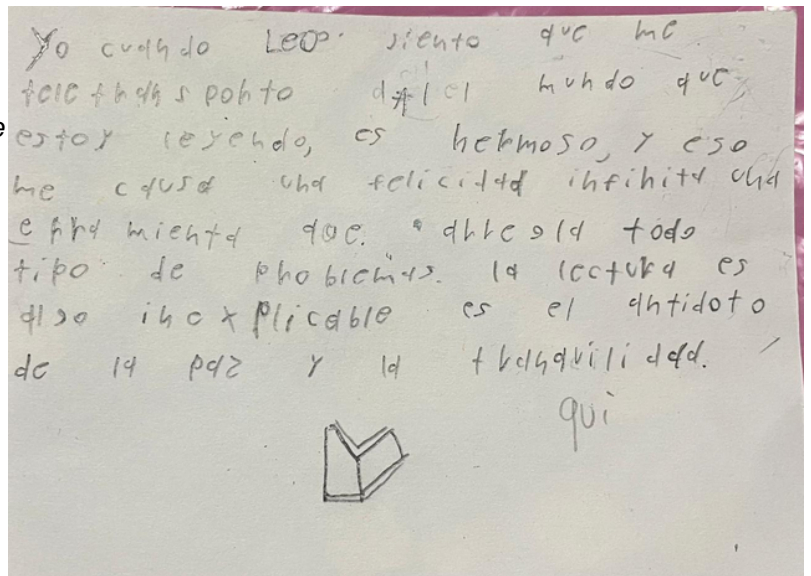 Yo cuando Leo siento que me
teletransporto al el mundo que
e estoy leyendo, es hermoso, y eso
me causa una felicidad infinita una
erramienta que arregla todo
tipo de problemas. la lectura es
algo inexplicable es el antidoto
de la paz y la tranquilidad.
qui